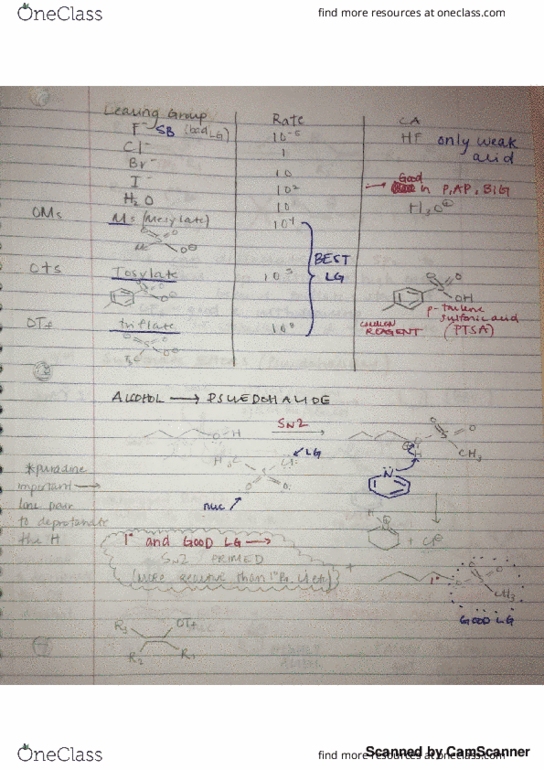 OneClass find more resources at oneclass.com
Leaving Group Rate CA
F⁻ SB (bad LG) 10⁻⁵ HF only weak acid
Cl⁻ 1
Br⁻ 10
I⁻ 10² Good in P, AP, BIG
H₂O 10 H₃O⊕
OMs Ms (Mesylate)
BEST LG
OTs Tosylate
OH
p-tulene sulfonic acid (PTSA)
COMMON REAGENT
OTf triflate
ALCOHOL → PSUEDOHALIDE
SN2
O H
H₃C Cl LG
nuc
CH₃
N
*pyridine important → lone pair to deprotonate the H
H
+ Cl⊖
1° and GOOD LG →
SN2 PRIMED
(more reactive than 1° Br, Cl, etc)
+
1°
CH₃
GOOD LG
R₃ OTf
R₂ R₁
OneClass find more resources at oneclass.com
Scanned by CamScanner